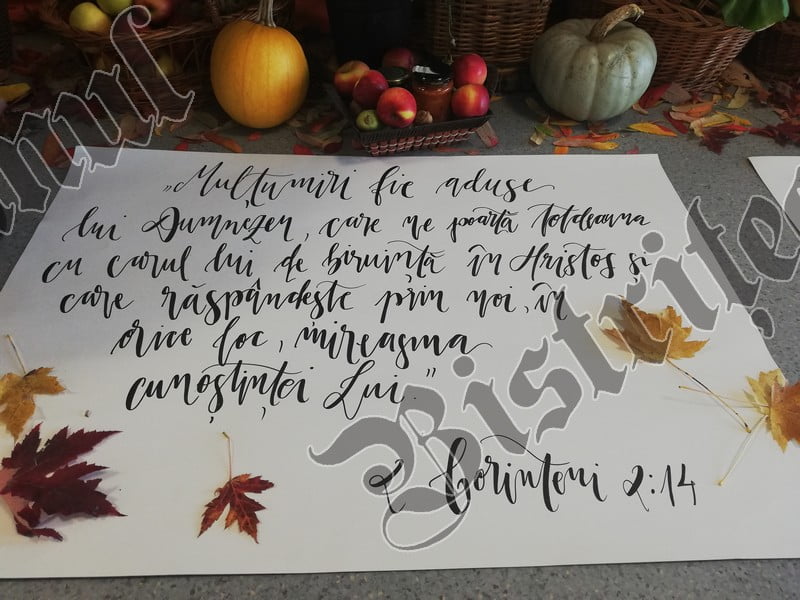 „Mulțumiri fie aduse
lui Dumnezeu, care ne poartă totdeauna
cu carul lui de biruință în Hristos și
care răspândește prin noi, în
orice loc, mireasma
cunoștinței Lui."
2 Corinteni 2:14
Bistrițe